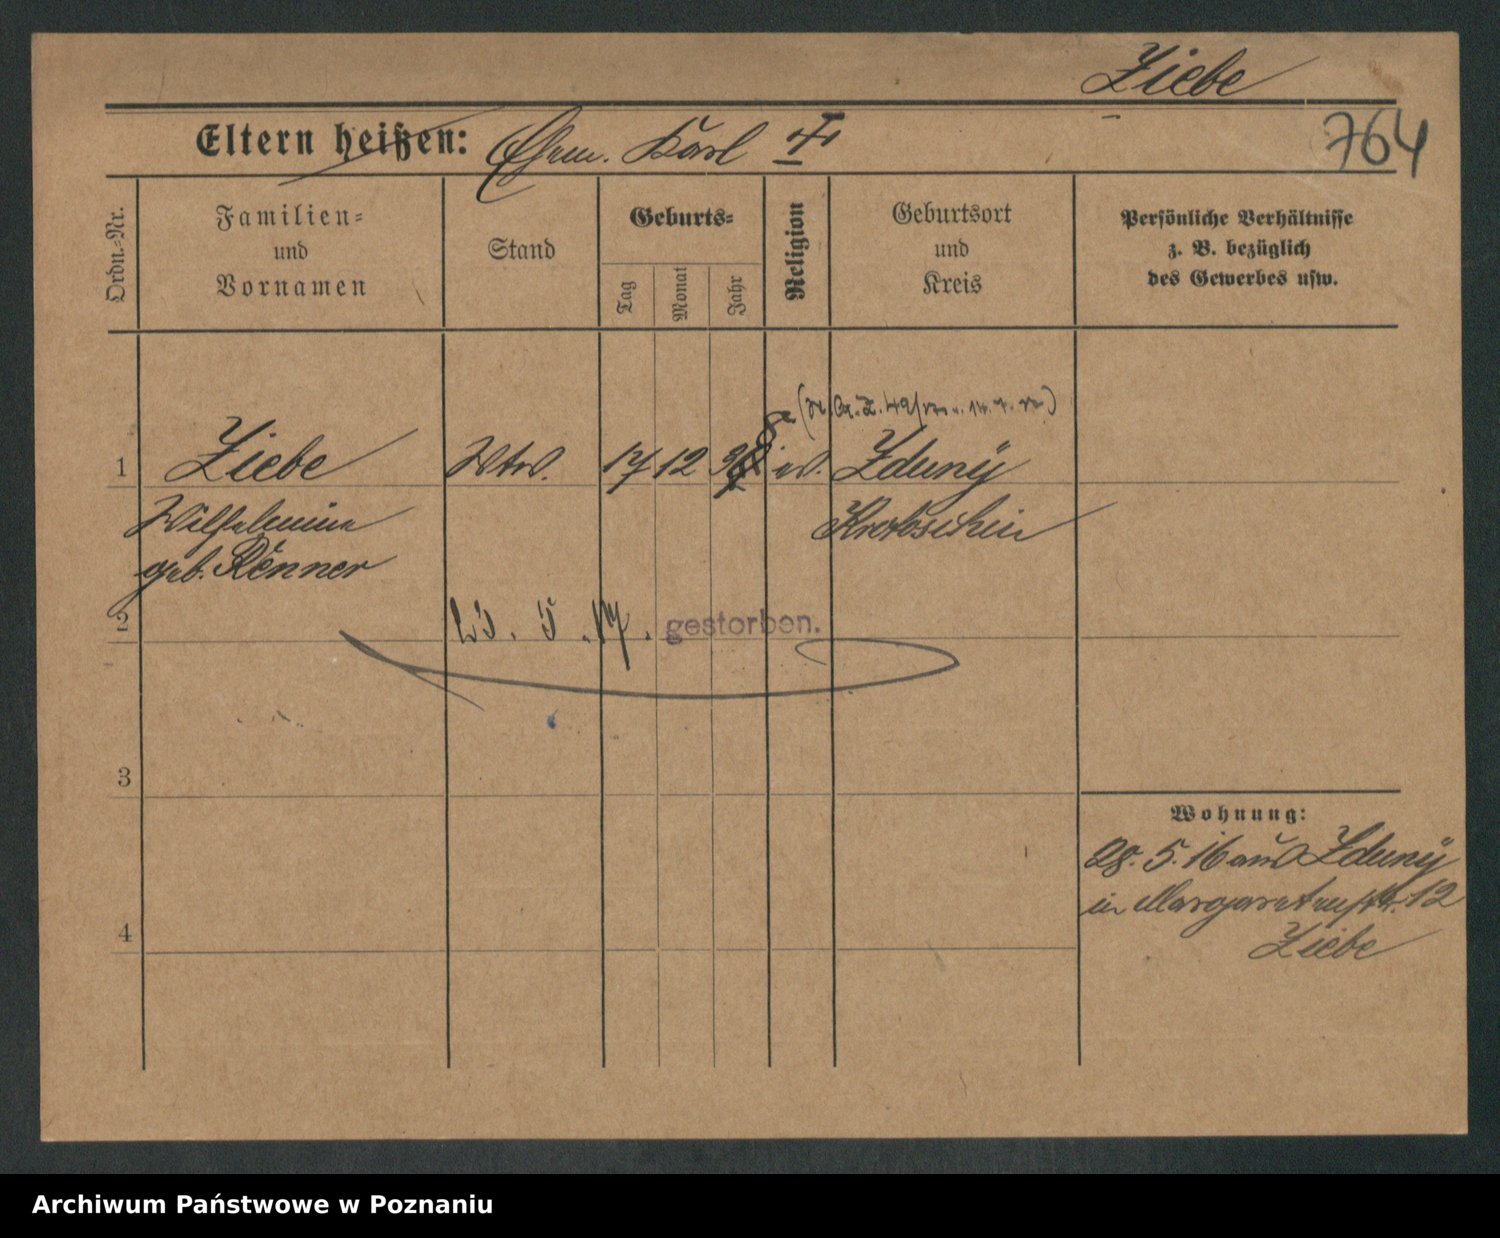 Ziebe
Eltern heißen: Ehem. Karl †
764
Ordn.-Nr.
Familien- und Vornamen
Stand
Geburts-
Tag
Monat
Jahr
Religion
Geburtsort und Kreis
Persönliche Verhältnisse
z. B. bezüglich
des Gewerbes usw.
1 Ziebe Wtw. 17 12 38 ev. Zduny
Wilhelmine Krotoschin
geb. Renner
2
gestorben.
3
Wohnung:
28. 5. 16 aus Zduny
in Margaretenstr. 12
Ziebe
4
Archiwum Państwowe w Poznaniu